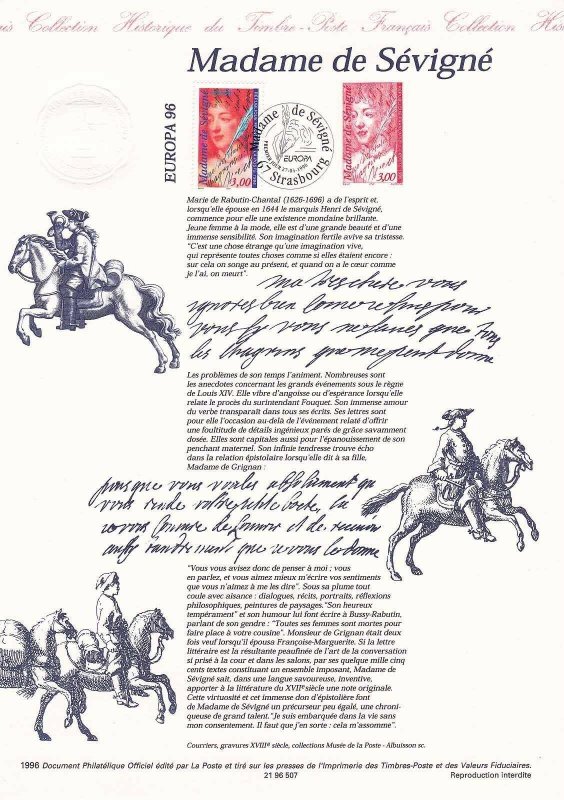 Collection Historique du Timbre-Poste Français Collection
Madame de Sévigné
EUROPA 96
Madame de Sévigné
3,00
Madame de Sévigné
PREMIER JOUR 27-04-1996
EUROPA
67 Strasbourg
Madame de Sévigné
3,00
Marie de Rabutin-Chantal (1626-1696) a de l'esprit et,
lorsqu'elle épouse en 1644 le marquis Henri de Sévigné,
commence pour elle une existence mondaine brillante.
Jeune femme à la mode, elle est d'une grande beauté et d'une
immense sensibilité. Son imagination fertile avive sa tristesse.
"C'est une chose étrange qu'une imagination vive,
qui représente toutes choses comme si elles étaient encore :
sur cela on songe au présent, et quand on a le cœur comme
je l'ai, on meurt".
vous
bien
vous que
les chagrins que
Les problèmes de son temps l'animent. Nombreuses sont
les anecdotes concernant les grands événements sous le règne
de Louis XIV. Elle vibre d'angoisse ou d'espérance lorsqu'elle
relate le procès du surintendant Fouquet. Son immense amour
du verbe transparaît dans tous ses écrits. Ses lettres sont
pour elle l'occasion au-delà de l'événement relaté d'offrir
une foultitude de détails ingénieux parés de grâce savamment
dosée. Elles sont capitales aussi pour l'épanouissement de son
penchant maternel. Son infinie tendresse trouve écho
dans la relation épistolaire lorsqu'elle dit à sa fille,
Madame de Grignan :
puisque vous voulez absolument
vous
de et de
que je vous le donne
"Vous vous avisez donc de penser à moi ; vous
en parlez, et vous aimez mieux m'écrire vos sentiments
que vous n'aimez à me les dire". Sous sa plume tout
coule avec aisance : dialogues, récits, portraits, réflexions
philosophiques, peintures de paysages."Son heureux
tempérament" et son humour lui font écrire à Bussy-Rabutin,
parlant de son gendre : "Toutes ses femmes sont mortes pour
faire place à votre cousine". Monsieur de Grignan était deux
fois veuf lorsqu'il épousa Françoise-Marguerite. Si la lettre
littéraire est la résultante peaufinée de l'art de la conversation
si prisé à la cour et dans les salons, par ses quelque mille cinq
cents textes constituant un ensemble imposant, Madame de
Sévigné sait, dans une langue savoureuse, inventive,
apporter à la littérature du XVIIe siècle une note originale.
Cette virtuosité et cet immense don d'épistolière font
de Madame de Sévigné un précurseur peu égalé, une chroni-
queuse de grand talent."Je suis embarquée dans la vie sans
mon consentement. Il faut que j'en sorte : cela m'assomme".
Courriers, gravures XVIIIe siècle, collections Musée de la Poste - Albuisson sc.
1996 Document Philatélique Officiel édité par La Poste et tiré sur les presses de l'Imprimerie des Timbres-Poste et des Valeurs Fiduciaires.
21 96 507
Reproduction interdite